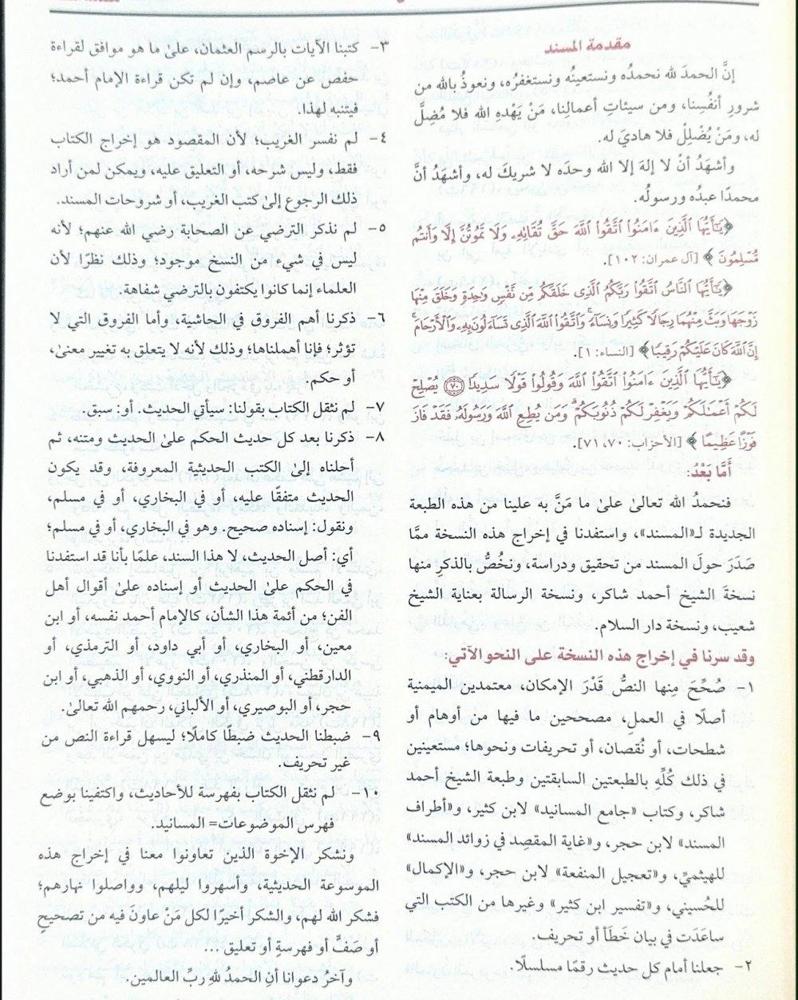 مقدمة المسند
إنَّ الحمدَ لله نحمدُه ونستعينُه ونستغفرُه، ونعوذُ بالله من
شرورِ أنفُسِنا، ومن سيئاتِ أعمالِنا، مَنْ يَهْدِهِ الله فلا مُضِلَّ
له، ومَنْ يُضْلِلْ فلا هاديَ له.
وأشهَدُ أنْ لا إلهَ إلا الله وحدَه لا شريكَ له، وأشهَدُ أنَّ
محمدًا عبدُه ورسولُه.
﴿يَـٰٓأَيُّهَا ٱلَّذِينَ ءَامَنُوا۟ ٱتَّقُوا۟ ٱللَّهَ حَقَّ تُقَاتِهِۦ وَلَا تَمُوتُنَّ إِلَّا وَأَنتُم
مُّسْلِمُونَ﴾ [آل عمران: ١٠٢].
﴿يَـٰٓأَيُّهَا ٱلنَّاسُ ٱتَّقُوا۟ رَبَّكُمُ ٱلَّذِى خَلَقَكُم مِّن نَّفْسٍ وَٰحِدَةٍ وَخَلَقَ مِنْهَا
زَوْجَهَا وَبَثَّ مِنْهُمَا رِجَالًا كَثِيرًا وَنِسَآءً ۚ وَٱتَّقُوا۟ ٱللَّهَ ٱلَّذِى تَسَآءَلُونَ بِهِۦ وَٱلْأَرْحَامَ ۚ
إِنَّ ٱللَّهَ كَانَ عَلَيْكُمْ رَقِيبًا﴾ [النساء: ١].
﴿يَـٰٓأَيُّهَا ٱلَّذِينَ ءَامَنُوا۟ ٱتَّقُوا۟ ٱللَّهَ وَقُولُوا۟ قَوْلًا سَدِيدًا ٧٠ يُصْلِحْ
لَكُمْ أَعْمَـٰلَكُمْ وَيَغْفِرْ لَكُمْ ذُنُوبَكُمْ ۗ وَمَن يُطِعِ ٱللَّهَ وَرَسُولَهُۥ فَقَدْ فَازَ
فَوْزًا عَظِيمًا﴾ [الأحزاب: ٧٠، ٧١].
أَمَّا بَعْدُ:
فنحمدُ الله تعالىٰ علىٰ ما مَنَّ به علينا من هذه الطبعة
الجديدة لـ«المسند»، واستفدنا في إخراج هذه النسخة ممَّا
صَدَرَ حولَ المسند من تحقيق ودراسة، ونخُصُّ بالذكرِ منها
نسخةَ الشيخ أحمد شاكر، ونسخة الرسالة بعناية الشيخ
شعيب، ونسخة دار السلام.
وقد سرنا في إخراج هذه النسخة على النحو الآتي:
١- صُحِّحَ مِنها النصُّ قَدْرَ الإمكان، معتمدين الميمنية
أصلًا في العملِ، مصححين ما فيها من أوهام أو
شطحات، أو نُقصان، أو تحريفات ونحوها؛ مستعينين
في ذلك كُلِّهِ بالطبعتين السابقتين وطبعة الشيخ أحمد
شاكر، وكتاب «جامع المسانيد» لابن كثير، و«أطراف
المسند» لابن حجر، و«غاية المقصِد في زوائد المسند»
للهيثميِّ، و«تعجيل المنفعة» لابن حجر، و«الإكمال»
للحُسيني، و«تفسير ابن كثير» وغيرها من الكتب التي
ساعَدَت في بيان خَطَأ أو تحريف.
٢- جعلنا أمام كل حديث رقمًا مسلسلًا.
٣- كتبنا الآيات بالرسم العثمان، علىٰ ما هو موافق لقراءة
حفص عن عاصم، وإن لم تكن قراءة الإمام أحمد؛
فيتنبه لهذا.
٤- لم نفسر الغريب؛ لأن المقصود هو إخراج الكتاب
فقط، وليس شرحه، أو التعليق عليه، ويمكن لمن أراد
ذلك الرجوع إلىٰ كتب الغريب، أو شروحات المسند.
٥- لم نذكر الترضي عن الصحابة رضي الله عنهم؛ لأنه
ليس في شيء من النسخ موجود؛ وذلك نظرًا لأن
العلماء إنما كانوا يكتفون بالترضي شفاهة.
٦- ذكرنا أهم الفروق في الحاشية، وأما الفروق التي لا
تؤثر؛ فإنا أهملناها؛ وذلك لأنه لا يتعلق به تغيير معنىٰ،
أو حكم.
٧- لم نثقل الكتاب بقولنا: سيأتي الحديث. أو: سبق.
٨- ذكرنا بعد كل حديث الحكم علىٰ الحديث ومتنه، ثم
أحلناه إلىٰ الكتب الحديثية المعروفة، وقد يكون
الحديث متفقًا عليه، أو في البخاري، أو في مسلم،
ونقول: إسناده صحيح. وهو في البخاري، أو في مسلم؛
أي: أصل الحديث، لا هذا السند، علمًا بأنا قد استفدنا
في الحكم علىٰ الحديث أو إسناده علىٰ أقوال أهل
الفن؛ من أئمة هذا الشأن، كالإمام أحمد نفسه، أو ابن
معين، أو البخاري، أو أبي داود، أو الترمذي، أو
الدارقطني، أو المنذري، أو النووي، أو الذهبي، أو ابن
حجر، أو البوصيري، أو الألباني، رحمهم الله تعالىٰ.
٩- ضبطنا الحديث ضبطًا كاملًا؛ ليسهل قراءة النص من
غير تحريف.
١٠- لم نثقل الكتاب بفهرسة للأحاديث، واكتفينا بوضع
فهرس الموضوعات= المسانيد.
ونشكر الإخوة الذين تعاونوا معنا في إخراج هذه
الموسوعة الحديثية، وأسهروا ليلهم، وواصلوا نهارهم؛
فشكر الله لهم، والشكر أخيرًا لكل مَنْ عاونَ فيه من تصحيحٍ
أو صَفٍّ أو فهرسةٍ أو تعليق...
وآخرُ دعوانا أنِ الحمدُ للهِ ربِّ العالمين.